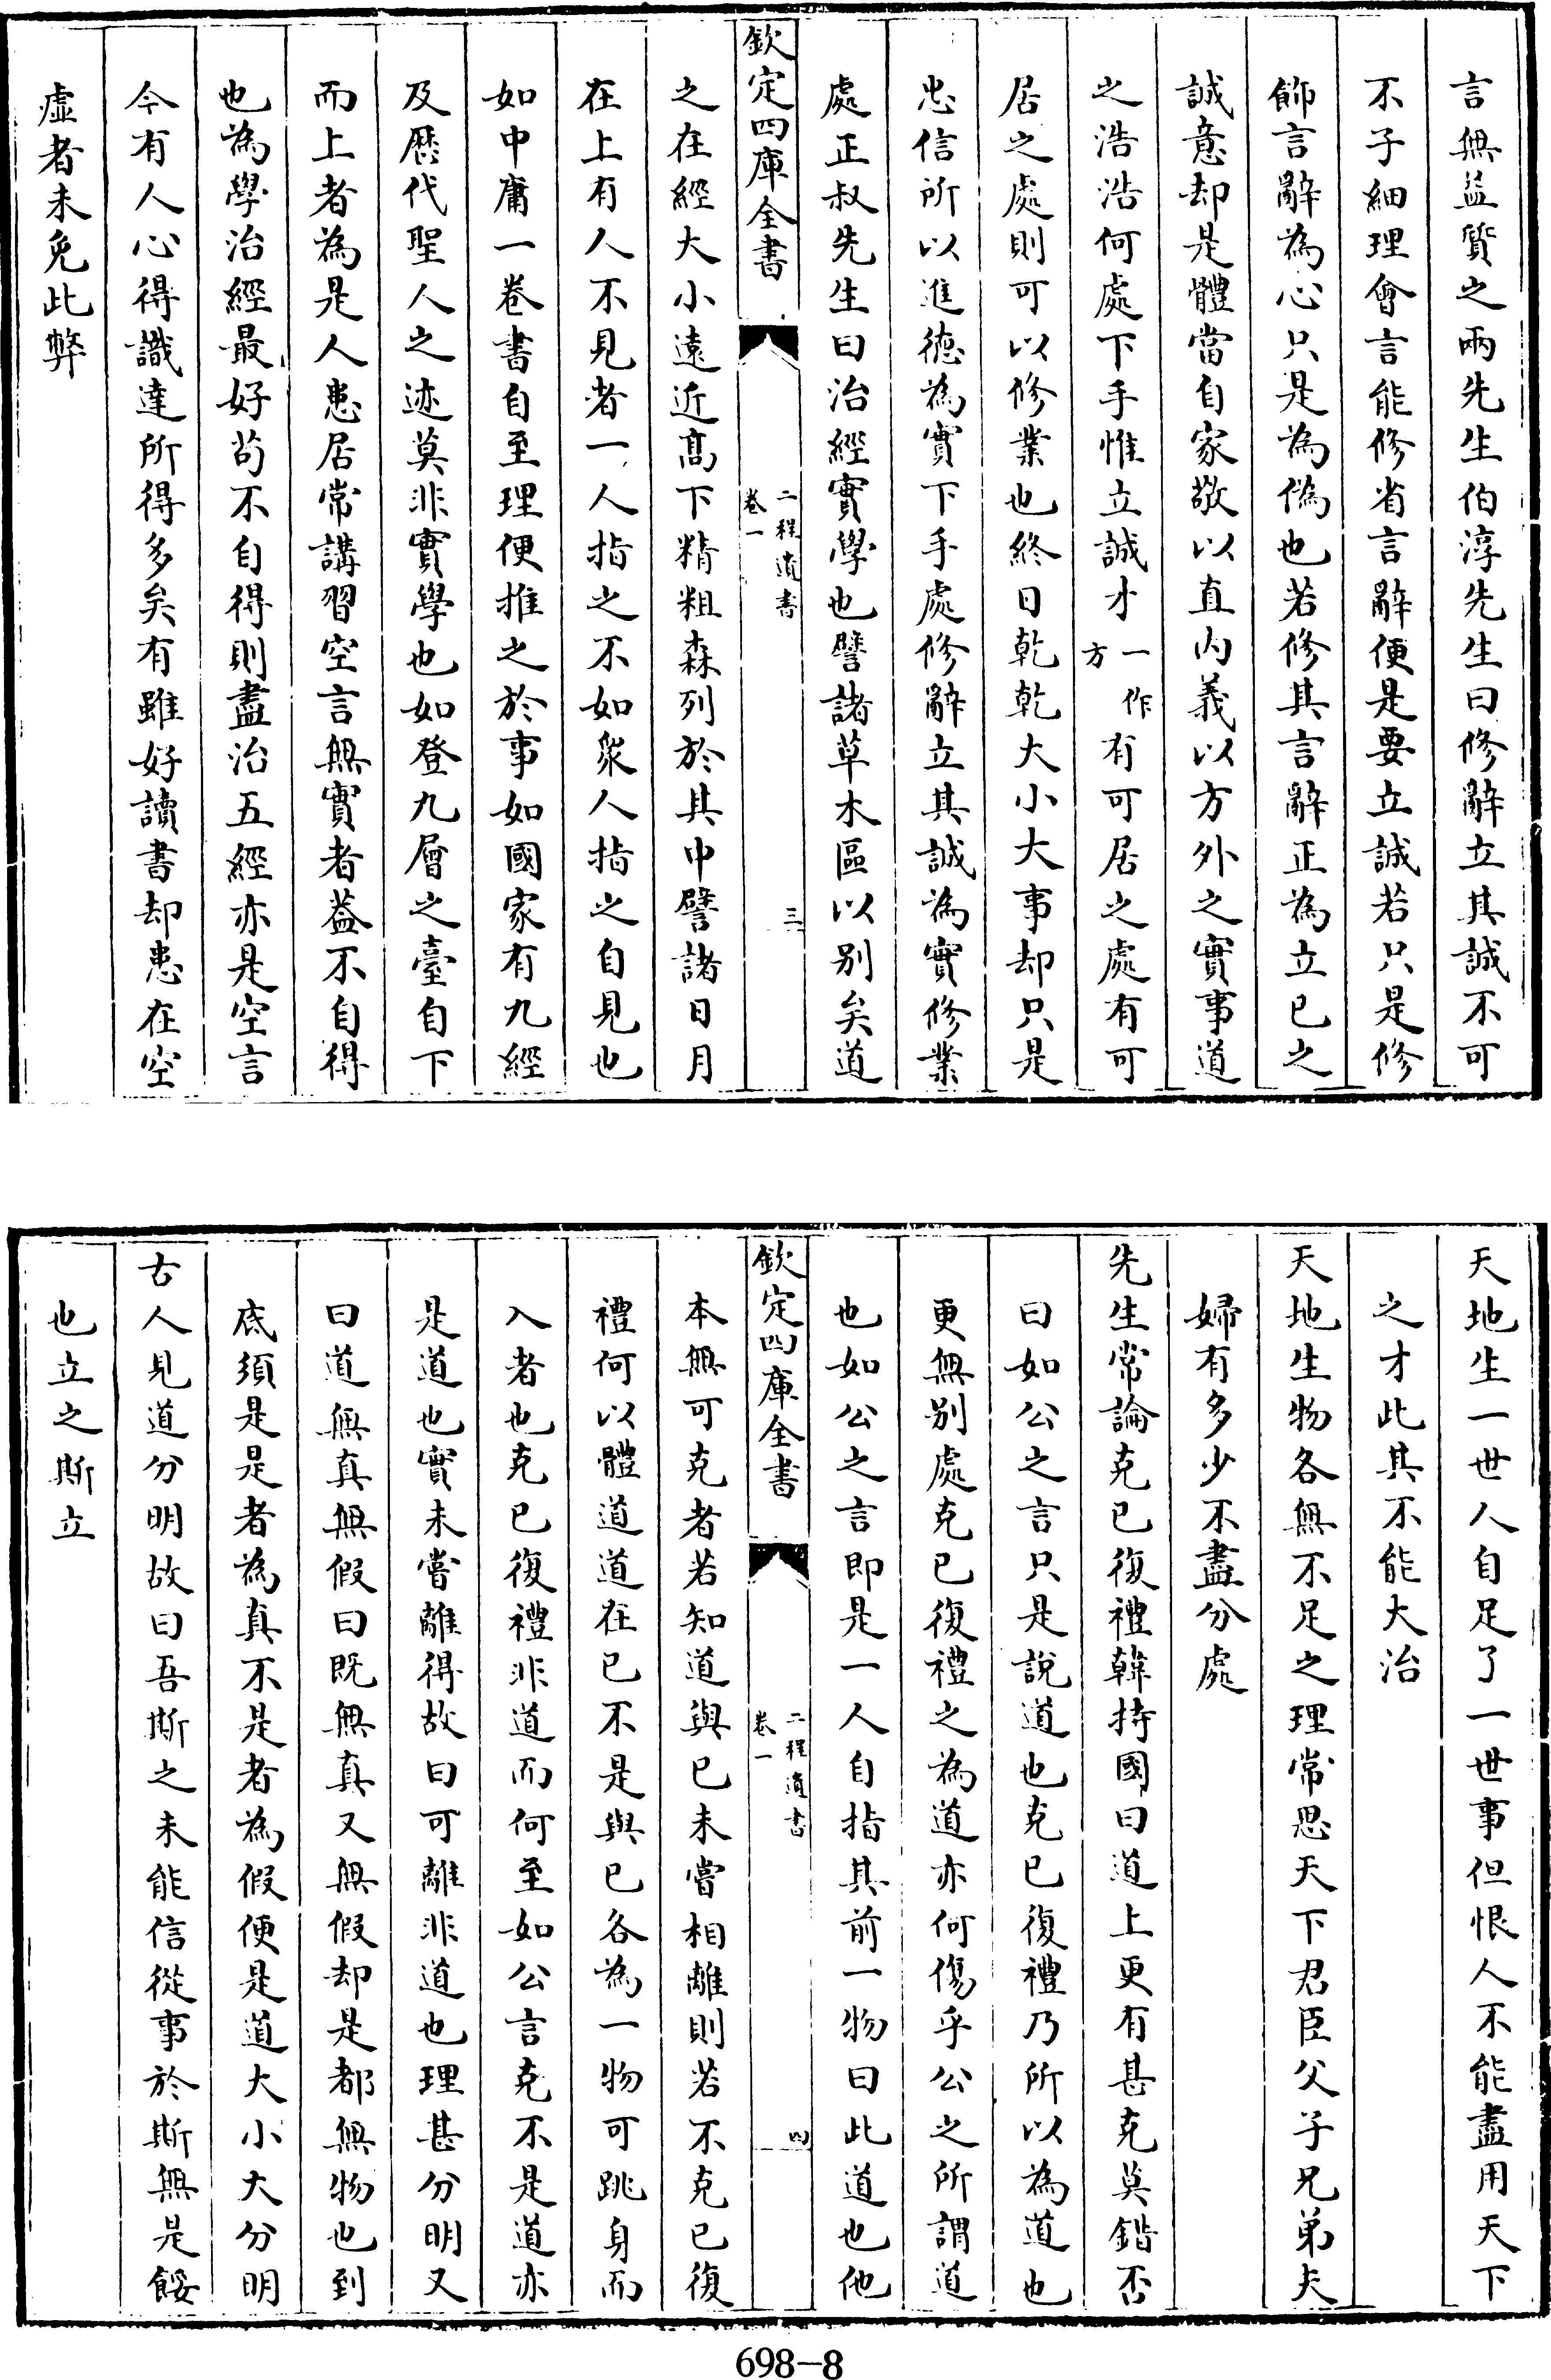 言無益質之兩先生伯淳先生曰修辭立其誠不可
不子細理會言能修省言辭便是要立誠若只是修
飾言辭為心只是為偽也若修其言辭正為立己之
誠意却是體當自家敬以直内義以方外之實事道
之浩浩何處下手惟立誠才一作方有可居之處有可
居之處則可以修業也終日乾乾大小大事却只是
忠信所以進徳為實下手處修辭立其誠為實修業
處正叔先生曰治經實學也譬諸草木區以别矣道
欽定四庫全書
二程遺書
卷一
三
之在經大小遠近髙下精粗森列於其中譬諸日月
在上有人不見者一人指之不如衆人指之自見也
如中庸一卷書自至理便推之於事如國家有九經
及歴代聖人之迹莫非實學也如登九層之臺自下
而上者為是人患居常講習空言無實者葢不自得
也為學治經最好茍不自得則盡治五經亦是空言
今有人心得識達所得多矣有雖好讀書却患在空
虚者未免此弊
天地生一世人自足了一世事但恨人不能盡用天下
之才此其不能大治
天地生物各無不足之理常思天下君臣父子兄弟夫
婦有多少不盡分處
先生常論克已復禮韓持國曰道上更有甚克莫錯否
曰如公之言只是說道也克已復禮乃所以為道也
更無别處克已復禮之為道亦何傷乎公之所謂道
也如公之言即是一人自指其前一物曰此道也他
欽定四庫全書
二程遺書
卷一
四
本無可克者若知道與已未嘗相離則若不克已復
禮何以體道道在已不是與已各為一物可跳身而
入者也克已復禮非道而何至如公言克不是道亦
是道也實未嘗離得故曰可離非道也理甚分明又
曰道無真無假曰既無真又無假却是都無物也到
底須是是者為真不是者為假便是道大小大分明
古人見道分明故曰吾斯之未能信從事於斯無是餒
也立之斯立
698-8